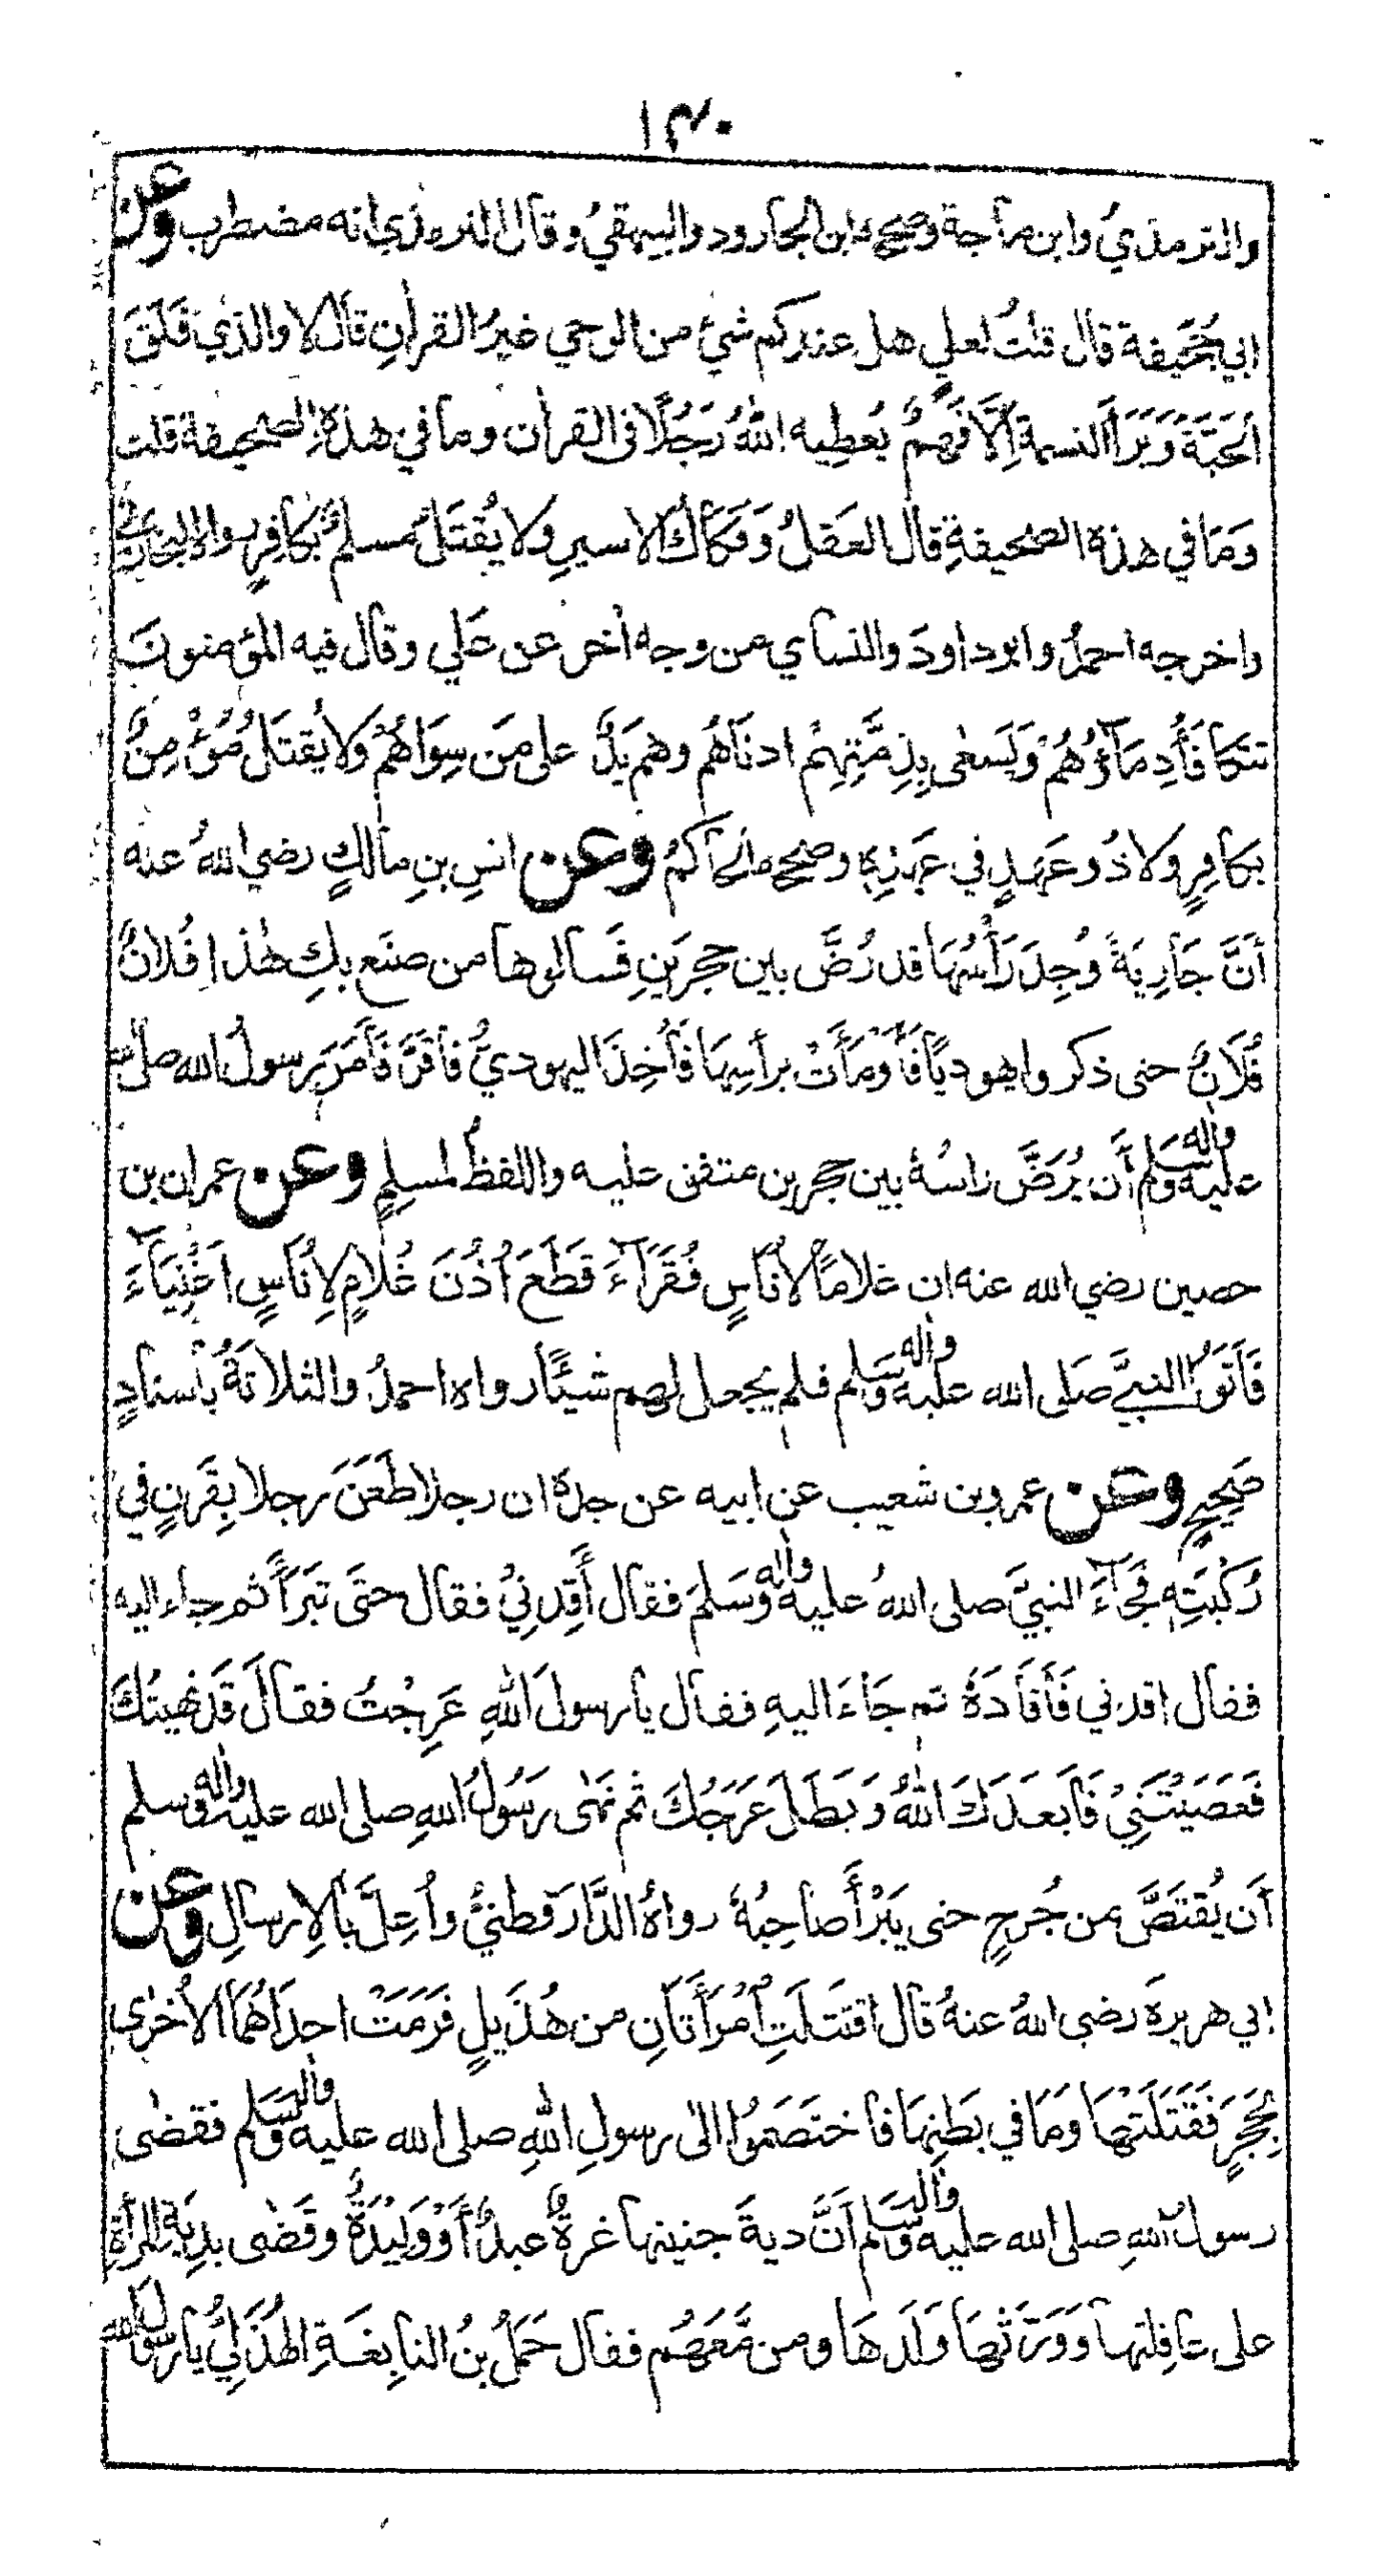 ١٤٠
والترمذيُ وابن ماجة وصححه ابن الجارود والبيهقيُ وقال الترمذي انه مضطرب وعن
ابي جُحَيفة قال قلتُ لعليٍ هل عندكم شيءٌ من الوحي غيرُ القرأنِ قال لا والذي فَلَقَ
الحَبَّةَ وَبَرَأَ النسمة إلَّا فَهمٌ يُعطِيه اللهُ رَجُلًا في القرأن وما في هذهِ الصحيفة قلت
وَمَا في هذه الصحيفةِ قال العَقلُ وَفَكَاكُ الاسيرِ ولا يُقتَلُ مسلمٌ بكافِرٍ رواه البخاري
واخرجه احمدُ وابو داودَ والنسائي من وجه أخر عن علي وقال فيه المؤمنونَ
تتكافَأُ دِمَاؤُهُمْ وَيَسعٰى بِذِمَّتِهِمْ ادنَاهُم وهم يَدٌ على مَن سِوَاهُمْ وَلا يُقتَلُ مُؤْمِنٌ
بكافِرٍ ولا ذُو عَهدٍ في عَهدِهٖ وصححه الحاكمُ وعن انسِ بنِ مالكٍ رضي اللهُ عنه
أنَّ جَارِيَةً وُجِدَ رَأْسُهَا قد رُضَّ بين حجرَينِ فَسالوها من صنَع بكِ هٰذا فُلانٌ
فُلَانٌ حتى ذكروا يهوديًّا فَأَوْمَأَتْ برأسِهَا فَأُخِذَ اليهوديُّ فأقَرَّ فَأَمَرَ رسولُ الله صلى الله
عليه وآله وسلم أن يُرَضَّ راسُهُ بين حجرين متفق عليه واللفظُ لمسلمٍ وعن عمران بن
حصين رضي الله عنه ان غلامًا لأناسٍ فُقَرَآءَ قَطَعَ اُذُنَ غُلامٍ لِأُنَاسٍ اَغْنِيَآءَ
فَأتَوُا النبيَّ صَلى الله عليه وآله وسلم فلم يجعل لهم شيئًا رواه احمدُ والثلاثةُ بأسنادٍ
صَحِيحٍ وعن عمرو بن شعيب عن ابيه عن جده ان رجلا طَعَنَ رجلا بِقَرنٍ في
رُكبَتِهٖ فجَآءَ النبيَّ صلى اللهُ عليه وآله وَسَلمَ فقال أَقِدنِيْ فقال حتَى تبرَأَ ثم جاء اليه
فقال اقدني فَأَقَادَهُ ثم جَاءَ اليهِ فقال يا رسولَ اللهِ عَرِجْتُ فقالَ قَد نهيتُكَ
فَعَصَيْتَنِيْ فَأَبعَدَكَ اللهُ وَبَطَلَ عَرَجُكَ ثم نَهٰى رَسُوْلُ اللهِ صلى الله عليه وآله وسلم
أَن يُقتَصَّ من جُرحٍ حتى يَبْرَأَ صاحِبُهُ رواهُ الدَّارَقطنيُّ واُعِلَّ بالإرسالِ وعن
ابي هريرةَ رضي اللهُ عنهُ قال اقتتَلَتِ امْرَأَتَانِ من هُذَيلٍ فَرَمَتْ احدَاهُمَا الأخرى
بِحَجَرٍ فَقَتَلَتْهَا وَمَا في بَطنِهَا فاختَصَمُوا الى رسولِ اللهِ صلى الله عليه وآله وسلم فقضى
رسولُ اللهِ صلى الله عليه وآله وسلم أَنَّ ديةَ جنينها غرةٌ عبدٌ أَوْ وَلِيْدَةٌ وقَضٰى بدِيَةِ المرأةِ
على عاقِلتها وَوَرَّثَهَا وَلَدَهَا ومن مَّعَهُم فقال حَمَلُ بنُ النابِغَةِ الهُذَلِيُّ يا رسولَ الله